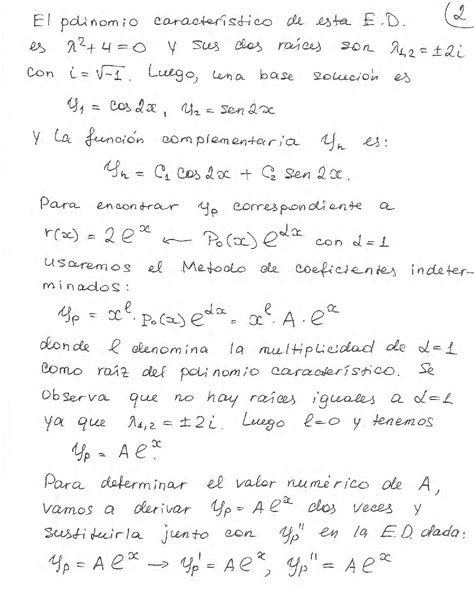 El polinomio característico de esta E.D. (2
es λ²+4=0 y sus dos raíces son λ₁,₂=±2i
con i=√-1. Luego, una base solución es
y₁ = cos2x, y₂ = sen2x
y la función complementaria yₕ es:
yₕ = C₁ cos2x + C₂ sen2x.
Para encontrar yₚ correspondiente a
r(x) = 2eˣ ← P₀(x)e^{αx} con α=1
usaremos el Metodo de coeficientes indeter-
minados:
yₚ = x^ℓ·P₀(x)e^{αx} = x^ℓ·A·eˣ
donde ℓ denomina la multiplicidad de α=1
como raíz del polinomio característico. Se
observa que no hay raíces iguales a α=1
ya que λ₁,₂=±2i. Luego ℓ=0 y tenemos
yₚ = Aeˣ.
Para determinar el valor numérico de A,
vamos a derivar yₚ=Aeˣ dos veces y
sustituirla junto con yₚ'' en la E.D. dada:
yₚ=Aeˣ → yₚ'=Aeˣ, yₚ''=Aeˣ